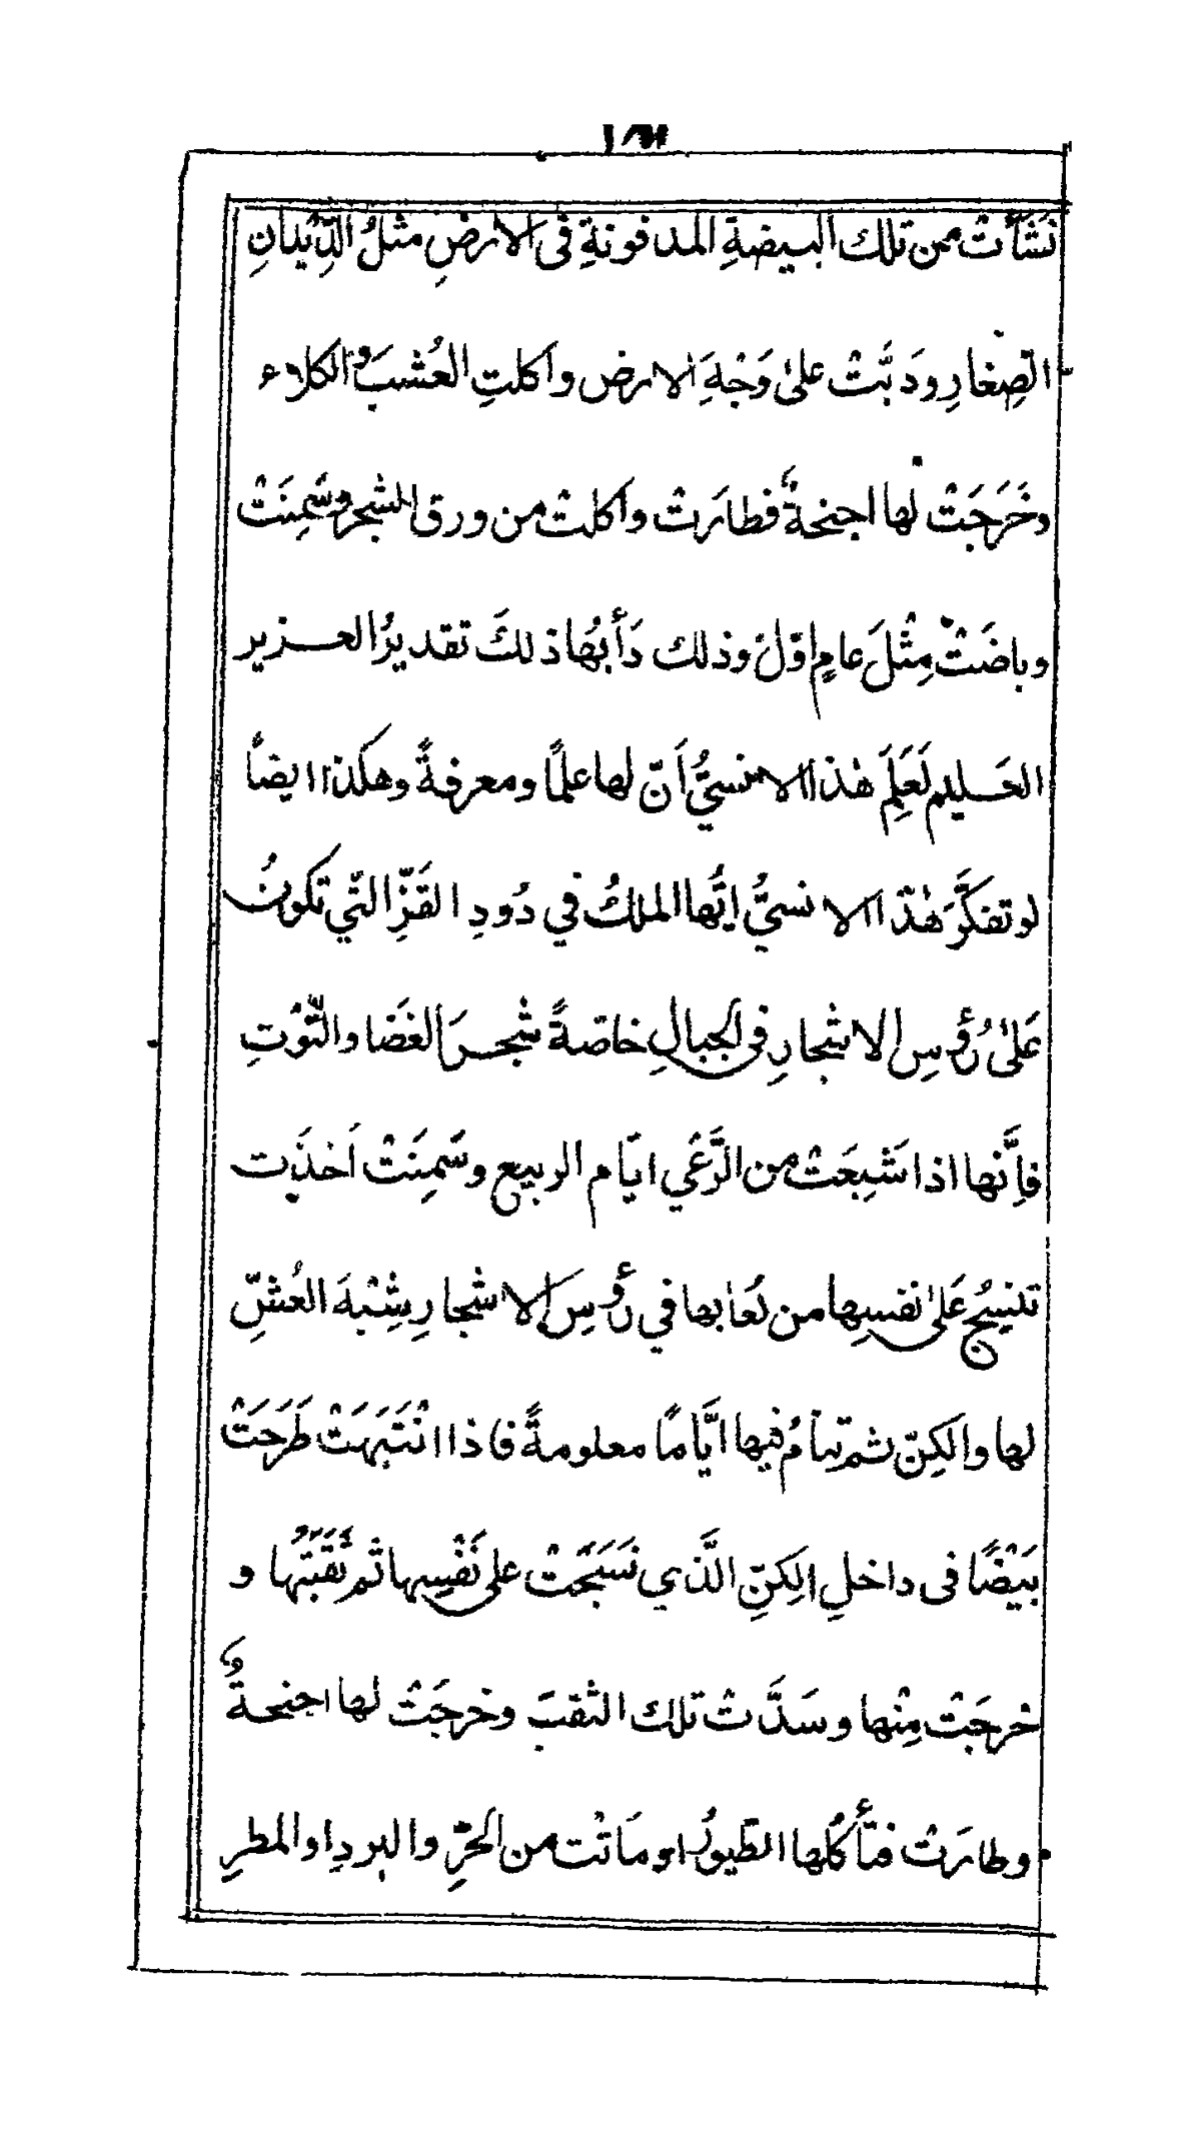 نَشَأَتْ من تلك البيضةِ المدفونةِ فى الارضِ مثلُ الدِّيدانِ
الصِغارِ ودَبَّتْ علىٰ وَجْهِ الارض واكلتِ العُشبَ والكلاء
وخَرَجَتْ لها اجنحةٌ فطارَتْ واكلتْ من ورق الشجر وسَمِنَتْ
وباضَتْ مِثْلَ عامٍ اوّلَ وذلك دَأبُها ذلكَ تقديرُ العـزير
العَـليم لَعَلِمَ هٰذا الانسيُّ اَنّ لها علمًا ومعرفةً وهكذا ايضاً
لو تفكَّرَ هٰذا الانسيُّ ايُّها الملكُ في دُودِ القَزِّ التّي تكونُ
عَلىٰ رُؤسِ الاشجارِ فى الجبالِ خاصّةً شجـرَ الغَضا والتُّوْتِ
فاِنَّها اذا شَبِعَتْ من الرَّعْي ايّام الربيع وسَمِنَتْ اَخذَت
تنسِجُ عَلىٰ نفسِها من لُعابها في رُؤسِ الاشجارِ شِبْهَ العُشِّ
لها والكِنّ ثم تنامُ فيها ايَّامًا معلومةً فاذا انْتَبَهَتْ طَرَحَتْ
بَيْضًا فى داخلِ الكِنِّ الَّذي نَسَجَتْ على نَفْسِها ثم ثَقَبَتْها و
خرجَتْ مِنْها وسَدَّتْ تلك الثقبَ وخرجَتْ لها اجنحـةٌ
وطارَتْ فتأكُلها الطّيورُ او مَاتْت من الحَرِّ والبردِ او المطرِ